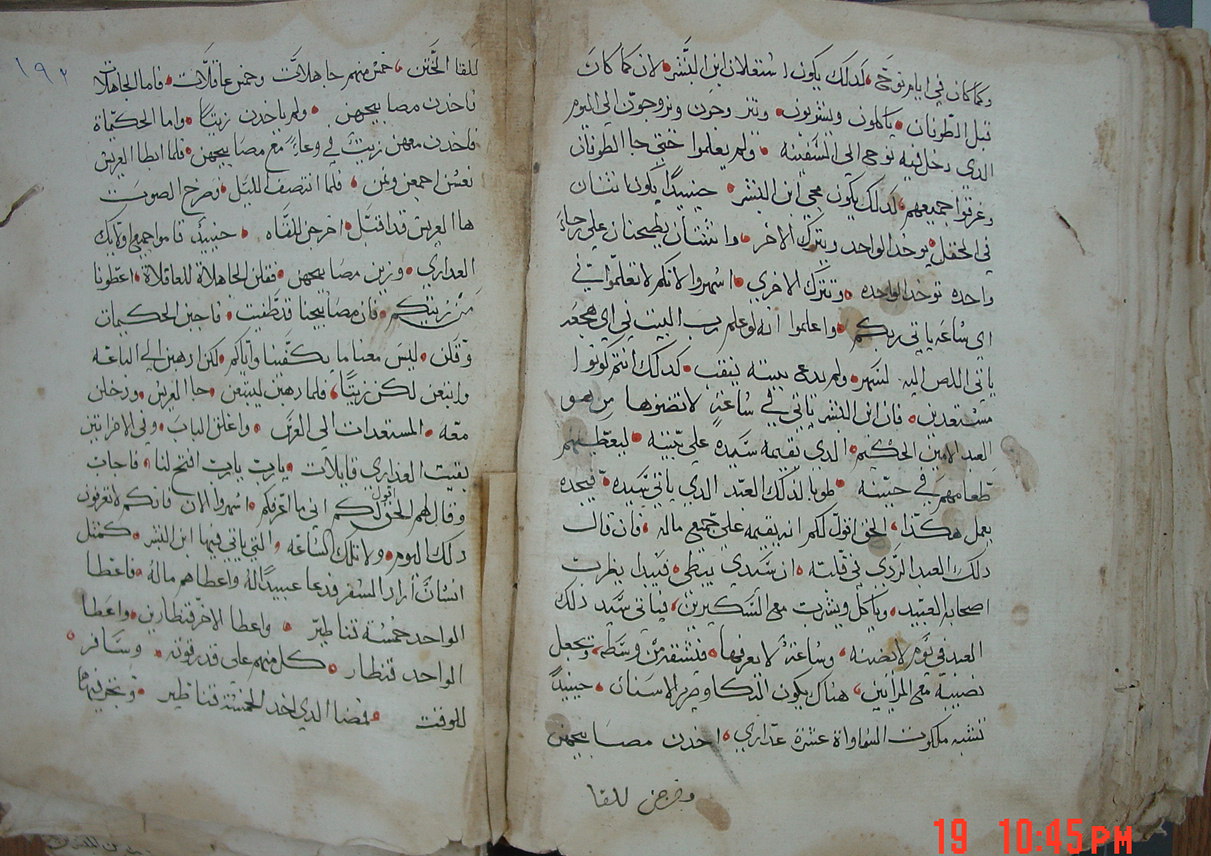 وكما كان في ايام نوح، لدلك يكون استعلان ابن البشر، لان كما كان
قبل الطوفان، ياكلون ويشربون، ويتزوجون ويزوجون الي اليوم
الدي دخل فيه نوح الي السفينه، ولم يعلموا حتي جا الطوفان
وغرقوا جميعهم، لدلك يكون مجي ابن البشر، حينيدا يكون اتنان
في الحقل، يوخد الواحد ويترك الاخر، واتنتان يطحنان علي رحاء
واحده توخد الواحده، وتترك الاخري، اسهروا لانكم لا تعلموا في
اي ساعه ياتي ربكم، واعلموا انه لو علم رب البيت في اي هجعه
ياتي اللص اليه لسهر، ولم يدع بيته ينقب، كدلك انتم كونوا
مستعدين، فان ابن البشر ياتي في ساعة لا تضنوها من هو
العبد الامين الحكيم، الدي يقيمه سيده علي بيته، ليعطيهم
طعامهم في حينه، طوبا لدلك العبد الدي ياتي سيده، فيجده
يعمل هكدا، الحق اقول لكم انه يقيمه علي جميع ماله، فان قال
دلك العبد الردي في قلبه، ان سيدي يبطي، فيبدا يضرب
اصحابه العبيد، وياكل ويشرب مع السكيرين، فياتي سيد دلك
العبد في يوم لا يضنه، وساعة لا يعرفها، فيشقه من وسطه، ويجعل
نصيبه مع المرايين، هناك يكون البكا وصرير الاسنان، حينيدا
تشبه ملكوت السماواة عشرة عداري، اخدن مصابيحهن
وخرجن للقا
١٩٢
للقا الختن، خمس منهم جاهلات وخمس عاقلات، فاما الجاهلات
فاخدن مصابيحهن، ولم ياخدن زيتا، واما الحكيماة
فاخدن معهن زيت في وعاء مع مصابيحهن، فلما ابطا العريس
نعسن اجمعين ونمن، فلما انتصف الليل، صرح الصوت
ها العريس قد اقبل، اخرجن للقاه، حينيد قاموا جميع اوليك
العداري، وزين مصابيحهن، فقلن الجاهلاة للعاقلاة، اعطونا
من زيتكم، فان مصابيحنا قد طفيت، فاجبن الحكيمات
وقلن، ليس معنا ما يكفينا واياكم، لكن ادهبن الي الباعه
وابتعن لكن زيتا، فلما دهبن ليبتعن، جا العريس، ودخلن
معه، المستعدات الي العرس، واغلق الباب، وفي الاخر اتين
بقيت العداري قايلات، يارب يارب افتح لنا، فاجاب
وقال لهم الحق اقول لكم اني ما اعرفكم، اسهروا الان فانكم لا تعرفون
دلك اليوم، ولا تلك الساعه، التي ياتي فيها ابن البشر، كمتل
انسان اراد السفر فدعا عبيدا له واعطاهم ماله، فاعطا
الواحد خمسة قناطير، واعطا الاخر قنطارين، واعطا
الواحد قنطار، كل منهم علي قدر قوته، وسافر
للوقت، فمضا الدي اخد الخمسة قناطير، وتجر فيها